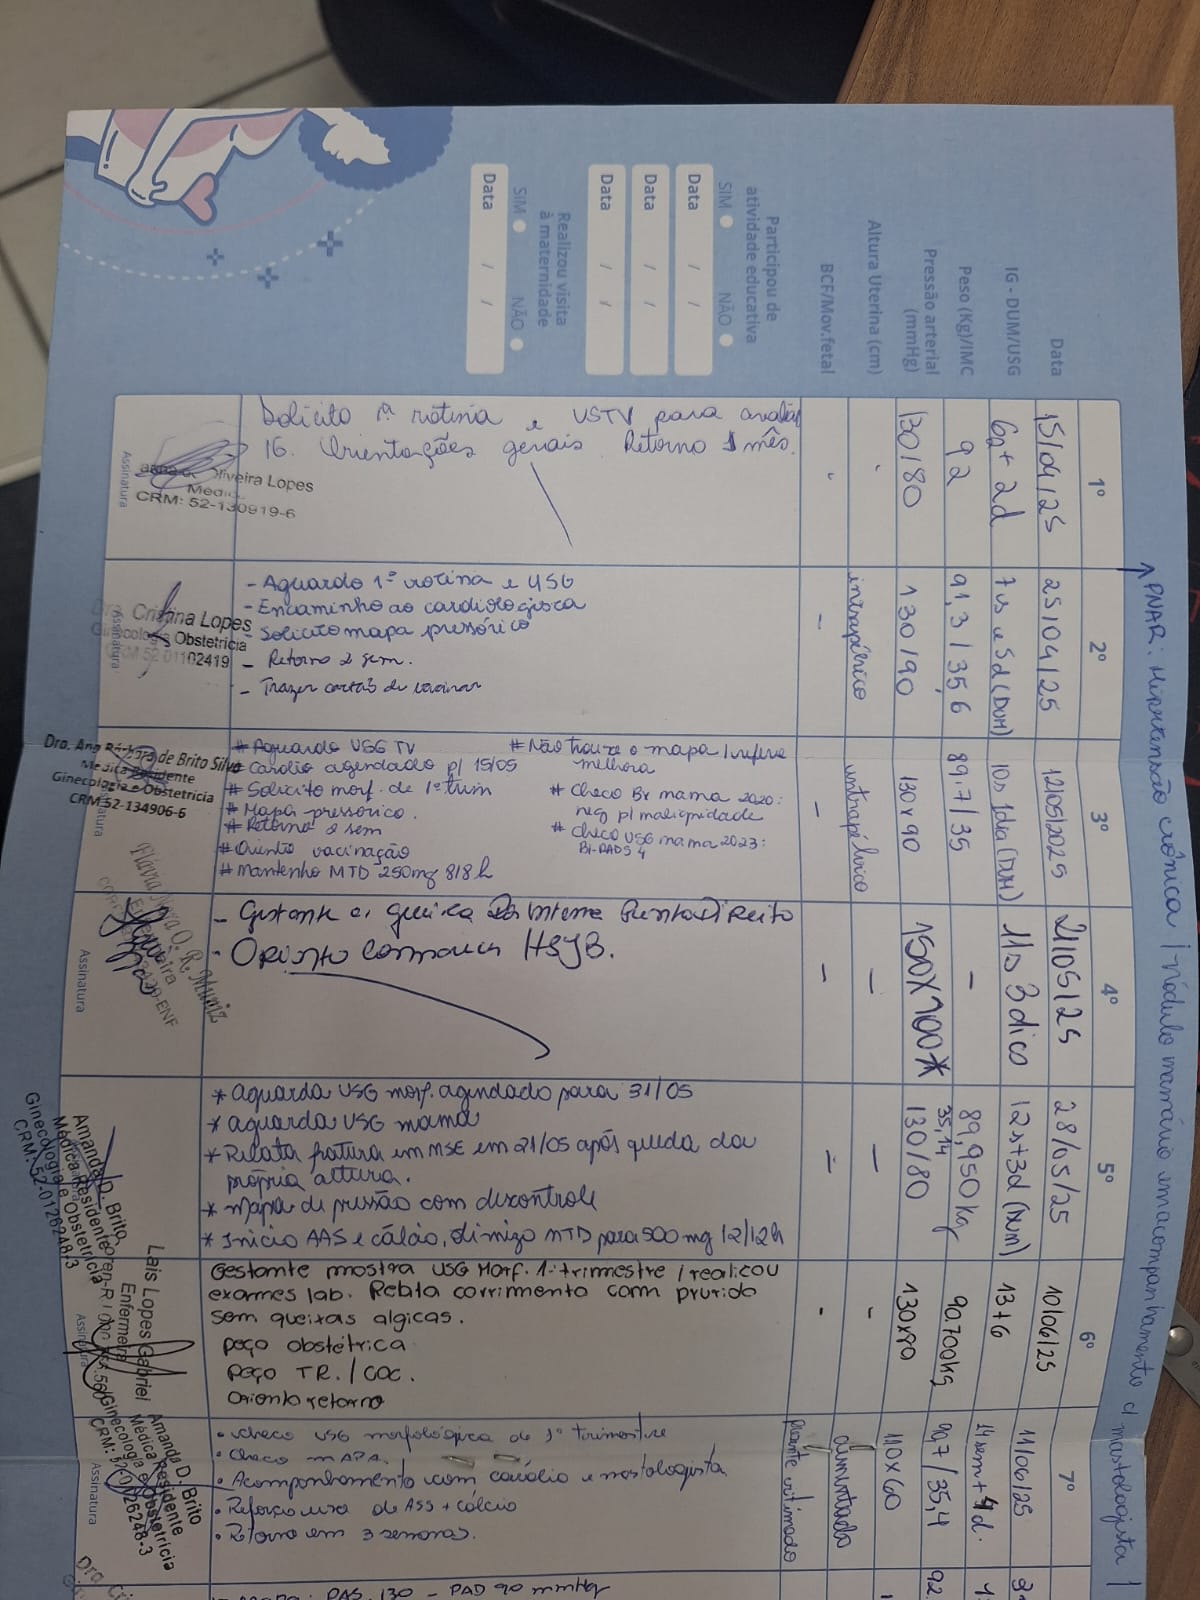 PNAR: Hipertensão crônica / nódulo mamário em acompanhamento c/ mastologista /
Data
IG - DUM/USG
Peso (Kg)/IMC
Pressão arterial
(mmHg)
Altura Uterina (cm)
BCF/Mov.fetal
Participou de
atividade educativa
SIM NÃO
Data / /
Data / /
Data / /
Realizou visita
à maternidade
SIM NÃO
Data / /
1º
15/04/25
6s + 2d
92
130/80
-
-
Solicito 1ª rotina e USTV para avaliar
IG. Orientações gerais. Retorno 1 mês.
Oliveira Lopes
CRM: 52-130919-6
Assinatura
2º
25/04/25
7s e 5d (DUM)
91,3 / 35,6
130/90
intrapélvico
-
- Aguardo 1ª rotina e USG
- Encaminho ao cardiologista
- Solicito mapa pressórico
- Retorno 2 sem.
- Trazer cartão de vacinas
Cristina Lopes
Ginecologia Obstetrícia
CRM 52 01102419
Assinatura
3º
12/05/2025
10s 1dia (DUM)
89,7/35
130x90
intrapélvico
-
# Aguardo USG TV
# Cardio agendado p/ 15/05
# Solicito morf. de 1º trim
# Mapa pressórico.
# Retorno 2 sem
# Oriento vacinação
# Mantenho MTD 250mg 8/8h
# Não trouxe o mapa / refere
melhora
# Checo Bx mama 2020:
neg p/ malignidade
# Checo USG mama 2023:
BI-RADS 4
Dra. Ana Bárbara de Brito Silva
Médica Residente
Ginecologia e Obstetrícia
CRM 52-134906-6
4º
21/05/25
11s 3 dias
-
150x100*
-
-
- Gestante c/ queixa
- Oriento HSJB.
Assinatura
5º
28/05/25
12s+3d (DUM)
89,950kg
35,14
130/80
-
-
* Aguarda USG morf. agendado para 31/05
* aguarda USG mama
* Relata fratura em MSE em 21/05 após queda da
própria altura.
* Mapa de pressão com descontrole
* Inicio AAS e cálcio, otimizo MTD para 500 mg 12/12h
Amanda D. Brito
Médica Residente
Ginecologia e Obstetrícia
CRM: 52-0126248-3
6º
10/06/25
13+6
90.700kg
130x90
-
-
Gestante mostra USG Morf. 1º trimestre / realizou
exames lab. Relata corrimento com prurido
sem queixas algicas.
peço obstétrica
peço TR./COC.
Oriento retorno
Lais Lopes Gabriel
Enfermeira
7º
11/06/25
14 sem + 4d.
90,7/35,4
110x60
aumentado
• Checo USG morfológica de 1º trimestre
• Checo MAPA.
• Acompanhamento com cardio e mastologista
• Reforço uso de ASS + cálcio
• Retorno em 3 semanas.
Amanda D. Brito
Médica Residente
Ginecologia e Obstetrícia
CRM: 52-0126248-3
Assinatura
92.
PAS 130 - PAD 90 mmHg